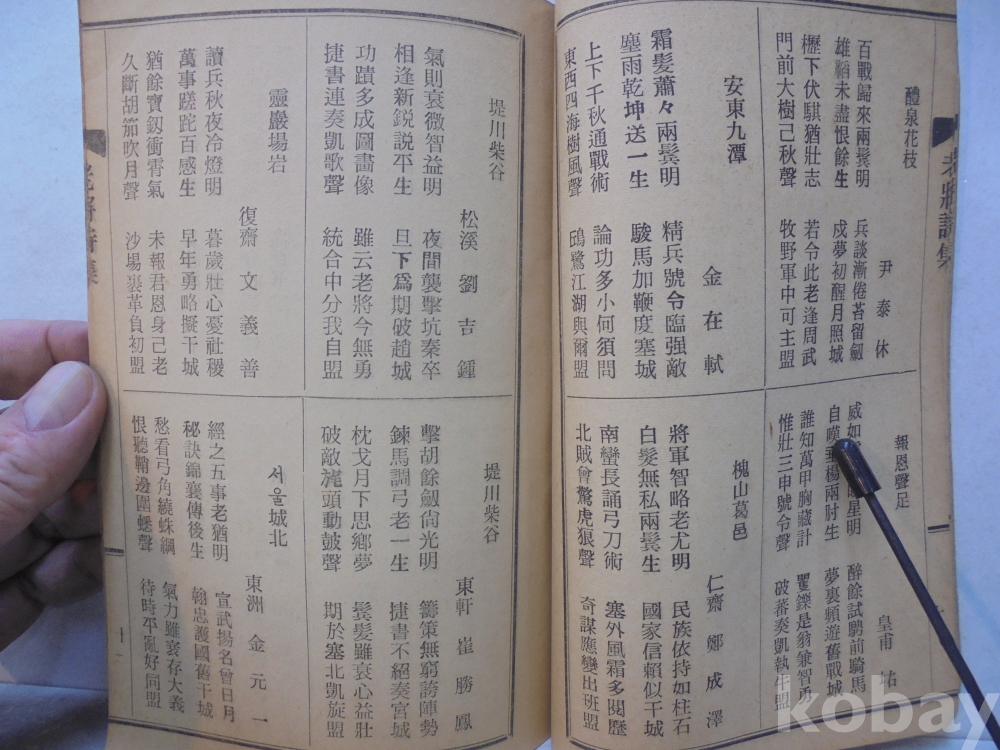 老將詩集
醴泉花枝
尹泰休
百戰歸來兩鬂明 兵談漸倦苔留劒
雄韜未盡恨餘生 戍夢初醒月照城
櫪下伏騏猶壯志 若令此老逢周武
門前大樹已秋聲 牧野軍中可主盟
報恩聲足
皇甫祐
威如 星明 醉餘試騁前騎馬
自嘆 楊兩肘生 夢裏頻遊舊戰城
誰知萬甲胸藏計 矍鑠是翁兼智勇
惟壯三申號令聲 破蕃奏凱執 盟
安東九潭
金在軾
霜髮蕭々兩鬂明 精兵號令臨强敵
塵雨乾坤送一生 駿馬加鞭度塞城
上下千秋通戰術 論功多小何須問
東西四海樹風聲 鷗鷺江湖與爾盟
槐山葛邑
仁齋 鄭成澤
將軍智略老尤明 民族依持如柱石
白髮無私兩鬂生 國家信賴似干城
南蠻長誦弓刀術 塞外風霜多閱歷
北賊曾驚虎狼聲 奇謀應變出班盟
堤川柴谷
松溪 劉吉鍾
氣則衰微智益明 夜間襲擊坑秦卒
相逢新銳說平生 旦下爲期破趙城
功蹟多成圖畵像 雖云老將今無勇
捷書連奏凱歌聲 統合中分我自盟
堤川柴谷
東軒 崔勝鳳
擊胡餘劒尙光明 籌策無窮誇陣勢
鍊馬調弓老一生 捷書不絕奏宮城
枕戈月下思鄕夢 鬂髮雖衰心益壯
破敵旄頭動鼓聲 期於塞北凱旋盟
靈巖場岩
復齋 文義善
讀兵秋夜冷燈明 暮歲壯心憂社稷
萬事蹉跎百感生 早年勇略擬干城
猶餘寶釼衝霄氣 未報君恩身己老
久斷胡笳吹月聲 沙場裹革負初盟
서울城北
東洲 金元一
經之五事老猶明 宣武揚名曾日月
秘訣錦囊傳後生 翰忠護國舊干城
愁看弓角繞蛛網 氣力雖衰存大義
恨聽鞘邊圍蟋聲 待時平亂好同盟
老將詩集
十一
kobay